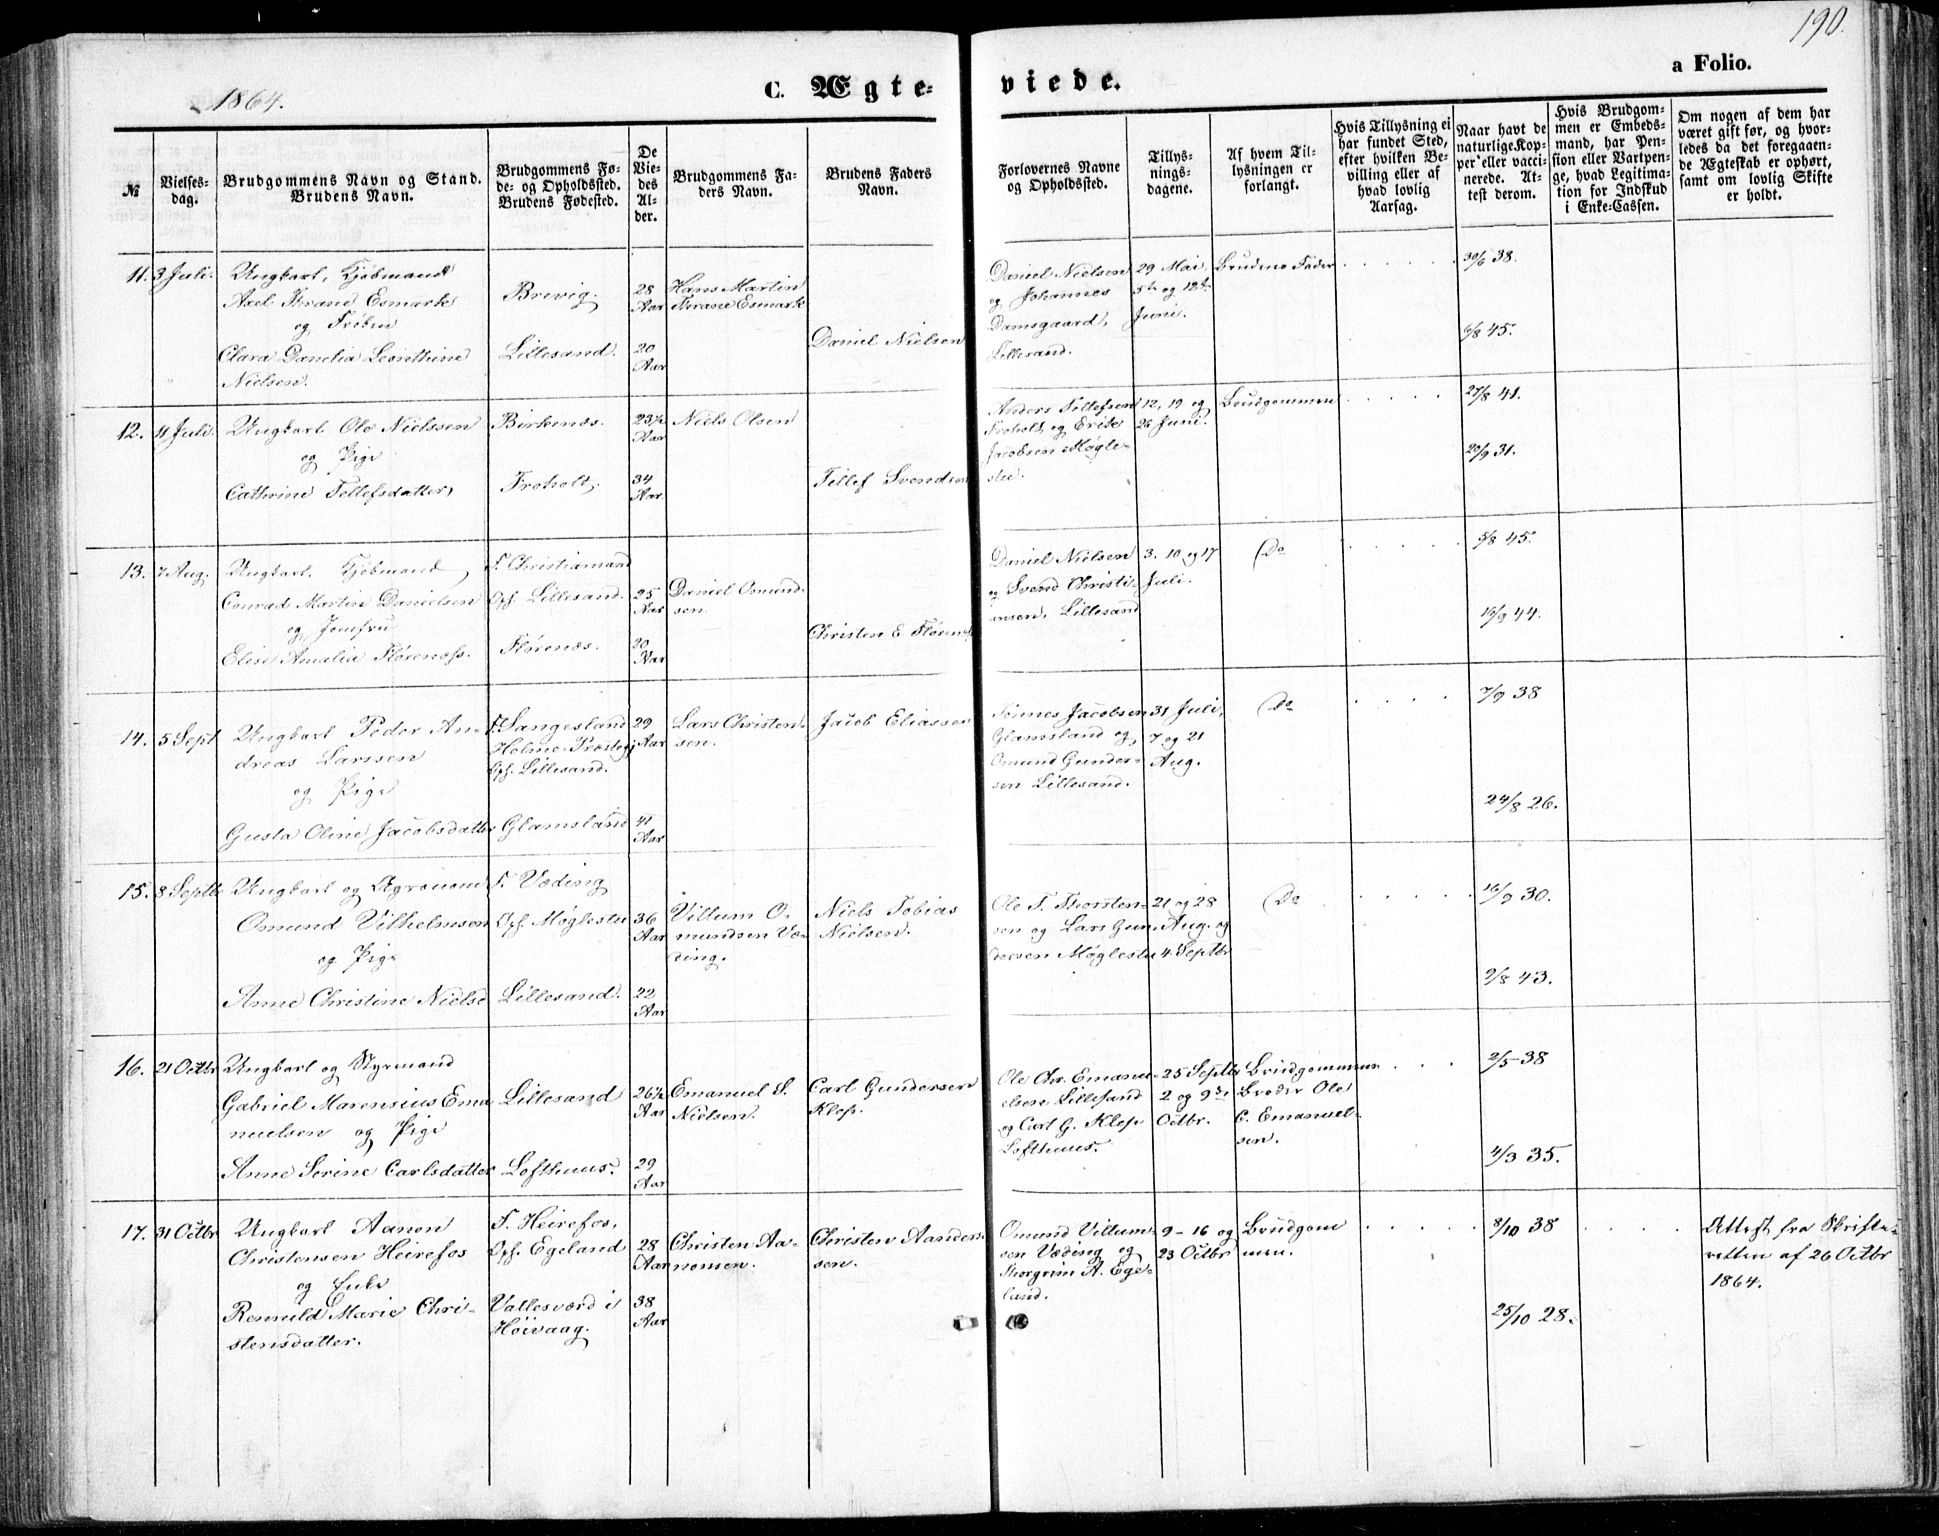 190.
1864.
C. Ægte-
viede.
a Folio.
№
Vielses-
dag.
Brudgommens Navn og Stand.
Brudens Navn.
Brudgommens Fø-
de- og Opholdssted.
Brudens Fødested.
De
Vie-
des
Al-
der.
Brudgommens Fa-
ders Navn.
Brudens Faders
Navn.
Forlovernes Navne
og Opholdssted.
Tillys-
nings-
dagene.
Af hvem Til-
lysningen er
forlangt.
Hvis Tillysning ei
har fundet Sted,
efter hvilken Be-
villing eller af
hvad lovlig
Aarsag.
Naar havt de
naturlige Kop-
per eller vacci-
nerede. At-
test derom.
Hvis Brudgom-
men er Embeds-
mand, har Pen-
sion eller Vartpen-
ge, hvad Legitima-
tion for Indskud
i Enke-Cassen.
Om nogen af dem har
været gift før, og hvor-
ledes da det foregaaen-
de Ægteskab er ophørt,
samt om lovlig Skifte
er holdt.
11.
3 Juli.
Ungkarl, Kjøbmand
Axel Thrane Esmark
og Frøken
Clara Danelia Leonthine
Nielsen.
Brevig.
Lillesand.
28
Aar
20
Aar
Hans Martin
Thrane Esmark
Daniel Nielsen
Daniel Nielsen
og Johannes
Damsgaard,
Lillesand.
29 Mai,
5te og 12te
Juni.
Brudens Fader
30/6 38.
6/8 45.
12.
11 Juli.
Ungkarl Ole Nielssen
og Pige
Cathrine Tellefsdatter
Birkenæs.
Froholt.
23½
Aar
34
Aar.
Niels Olsen
Tellef Svendsen
Anders Tellefsen
Froholt og Erik
Jacobsen Møgle-
stu.
12, 19 og
26 Juni.
Brudgommen
27/8 41.
20/9 31.
13.
7 Aug.
Ungkarl, Kjøbmand
Conrad Martin Danielsen
og Jomfru
Elise Amalia Flørenæss.
F. Christiansand
Oph. Lillesand.
Flørenæs.
25
Aar
20
Aar
Daniel Osmund-
sen.
Christen E Flørenæs
Daniel Nielsen
og Svend Christi-
ansen, Lillesand
3. 10 og 17
Juli.
Do
5/8 45.
19/9 44.
14.
5 Sept
Ungkarl Peder An-
dreas Larssen
og Pige
Gusta Oline Jacobsdatter
F. Sangesland
Holme Præstegj
Oph. Lillesand.
Glamsland
29
Aar
41
Aar
Lars Christen-
sen.
Jacob Eliassen
Tønnes Jacobsen
Glamsland og
Omund Gunder-
sen Lillesand.
31 Juli,
7 og 21
Aug.
Do
7/9 38
24/8 26.
15.
8 Septbr
Ungkarl og Agronom
Omund Vilhelmsen
og Pige
Anne Christine Nielse
F. Væding
Oph. Møglestu
Lillesand.
36
Aar
22
Aar
Villum O-
mundsen Væ-
ding.
Niels Tobias
Nielsen.
Ole T. Thorsten-
sen og Lars Gun-
dersen Møglestu
21 og 28
Aug. og
4 Septbr
Do
16/9 30.
9/8 43.
16.
21 Octbr
Ungkarl og Styrmand
Gabriel Marensius Ema
nuelsen og Pige
Anne Serine Carlsdatter
Lillesand
Lofthuus.
26½
Aar
29
Aar
Emanuel S.
Nielsen.
Carl Gundersen
Klep.
Ole Chr. Emanu-
elsen Lillesand
og Carl G. Klep
Lofthuus.
25 Septbr
2 og 9de
Octbr.
Brudgommens
Broder Ole
C. Emanuel-
sen.
2/5 38
4/3 35.
17.
31 Octbr
Ungkarl Aanon
Christensen Heirefos
og Enke
Renuld Marie Chri-
stensdatter.
F. Heirefos,
Oph. Egeland
Vallesværd i
Höivaag.
28
Aar
38
Aar
Christen Aa-
nonsen.
Christen Aanders-
sen.
Omund Villum-
sen Væding og
Thorgrim A. Ege-
land.
9 - 16 og
23 Octbr
Brudgom
men.
8/10 38
25/10 28.
Attest fra Skifte-
retten af 26 Octbr
1864.